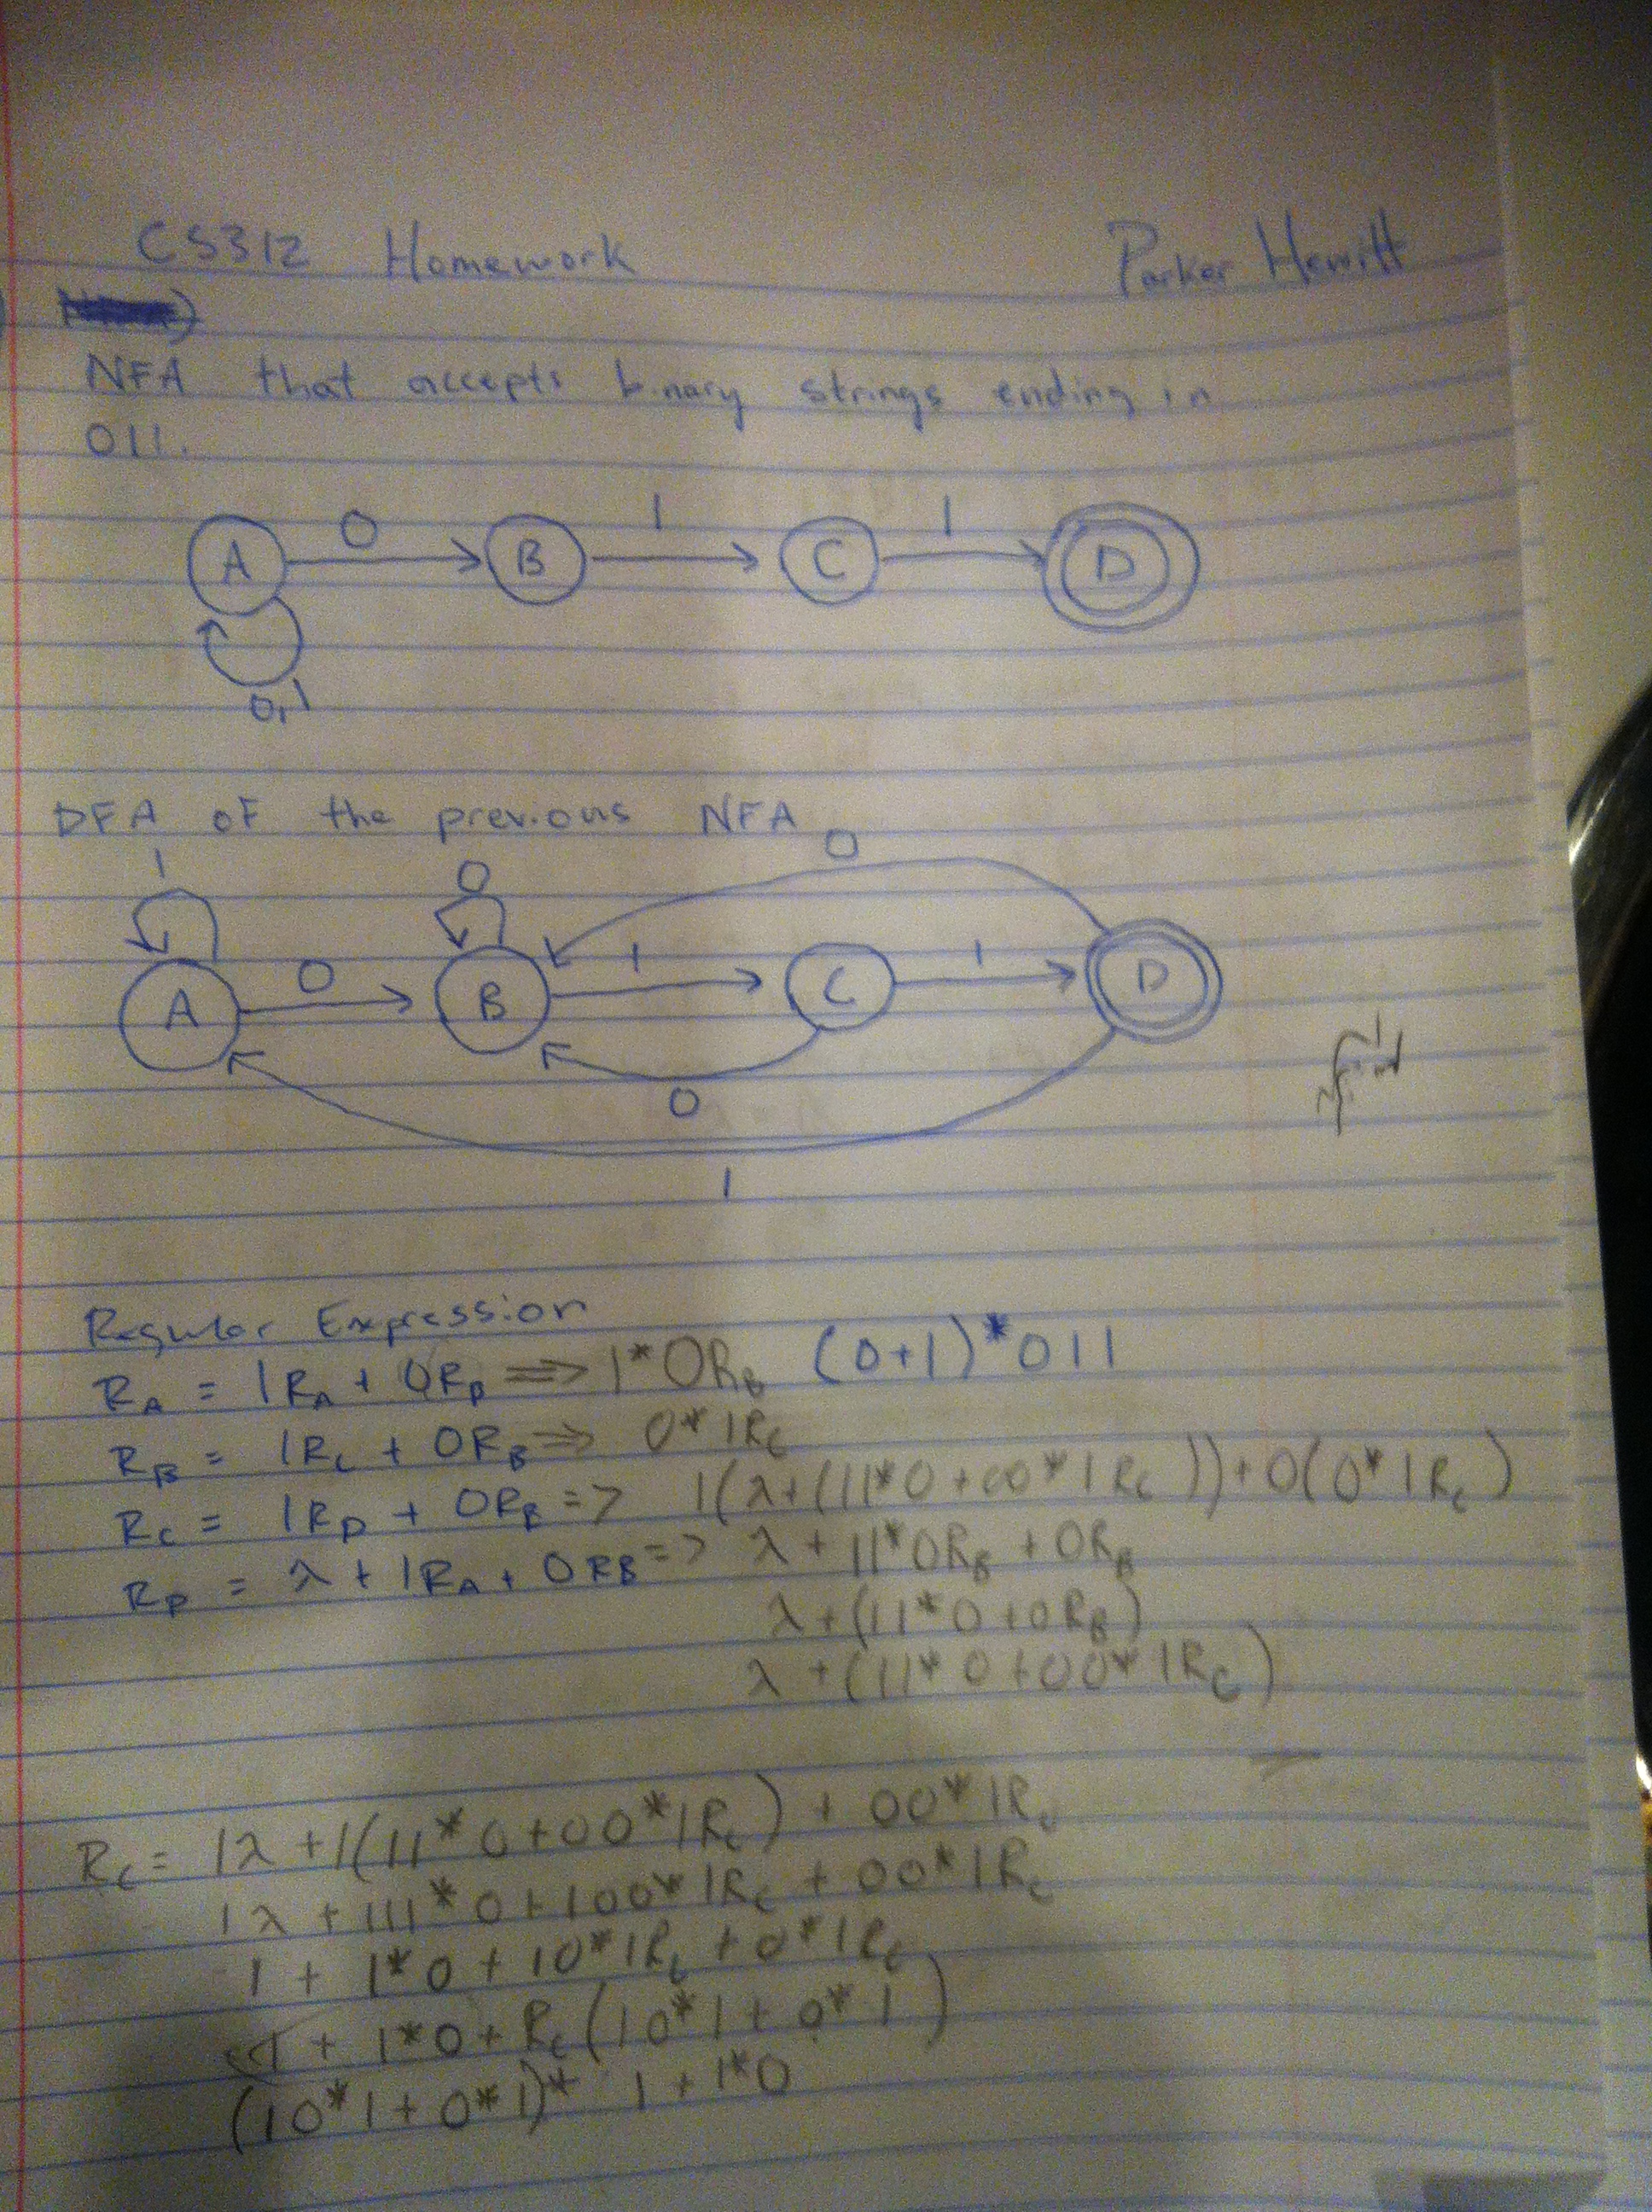 CS312 Homework Parker Hewitt
NFA that accepts binary strings ending in
011.
0 1 1
A B C D
0,1
DFA of the previous NFA
1 0 0
0 1 1
A B C D
0
1
Regular Expression
R_A = 1R_A + 0R_B => 1*0R_B (0+1)*011
R_B = 1R_C + 0R_B => 0*1R_C
R_C = 1R_D + 0R_B => 1(λ+(11*0+00*1R_C))+0(0*1R_C)
R_D = λ+1R_A+0R_B => λ+11*0R_B+0R_B
λ+(11*0+0R_B)
λ+(11*0+00*1R_C)
R_C = 1λ+1(11*0+00*1R_C) + 00*1R_C
1λ+111*0+100*1R_C + 00*1R_C
1 + 1*0+10*1R_C +0*1R_C
1 + 1*0+R_C(10*1+0*1)
(10*1+0*1)* 1+1*0